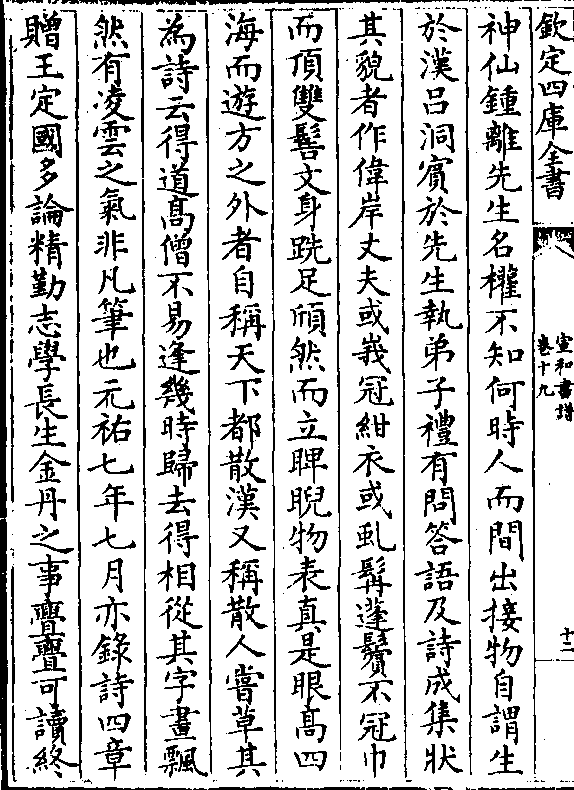 欽定四庫全書
宣和書譜
卷十九
十二
神仙鍾離先生名權不知何時人而間出接物自謂生
於漢呂洞賔於先生執弟子禮有問答語及詩成集狀
其貌者作偉岸丈夫或峩冠紺衣或虬髯蓬鬢不冠巾
而頂雙髻文身跣足頎然而立睥睨物表真是眼髙四
海而遊方之外者自稱天下都散漢又稱散人嘗草其
為詩云得道髙僧不易逢幾時歸去得相從其字畫飄
然有凌雲之氣非凡筆也元祐七年七月亦錄詩四章
贈王定國多論精勤志學長生金丹之事亹亹可讀終